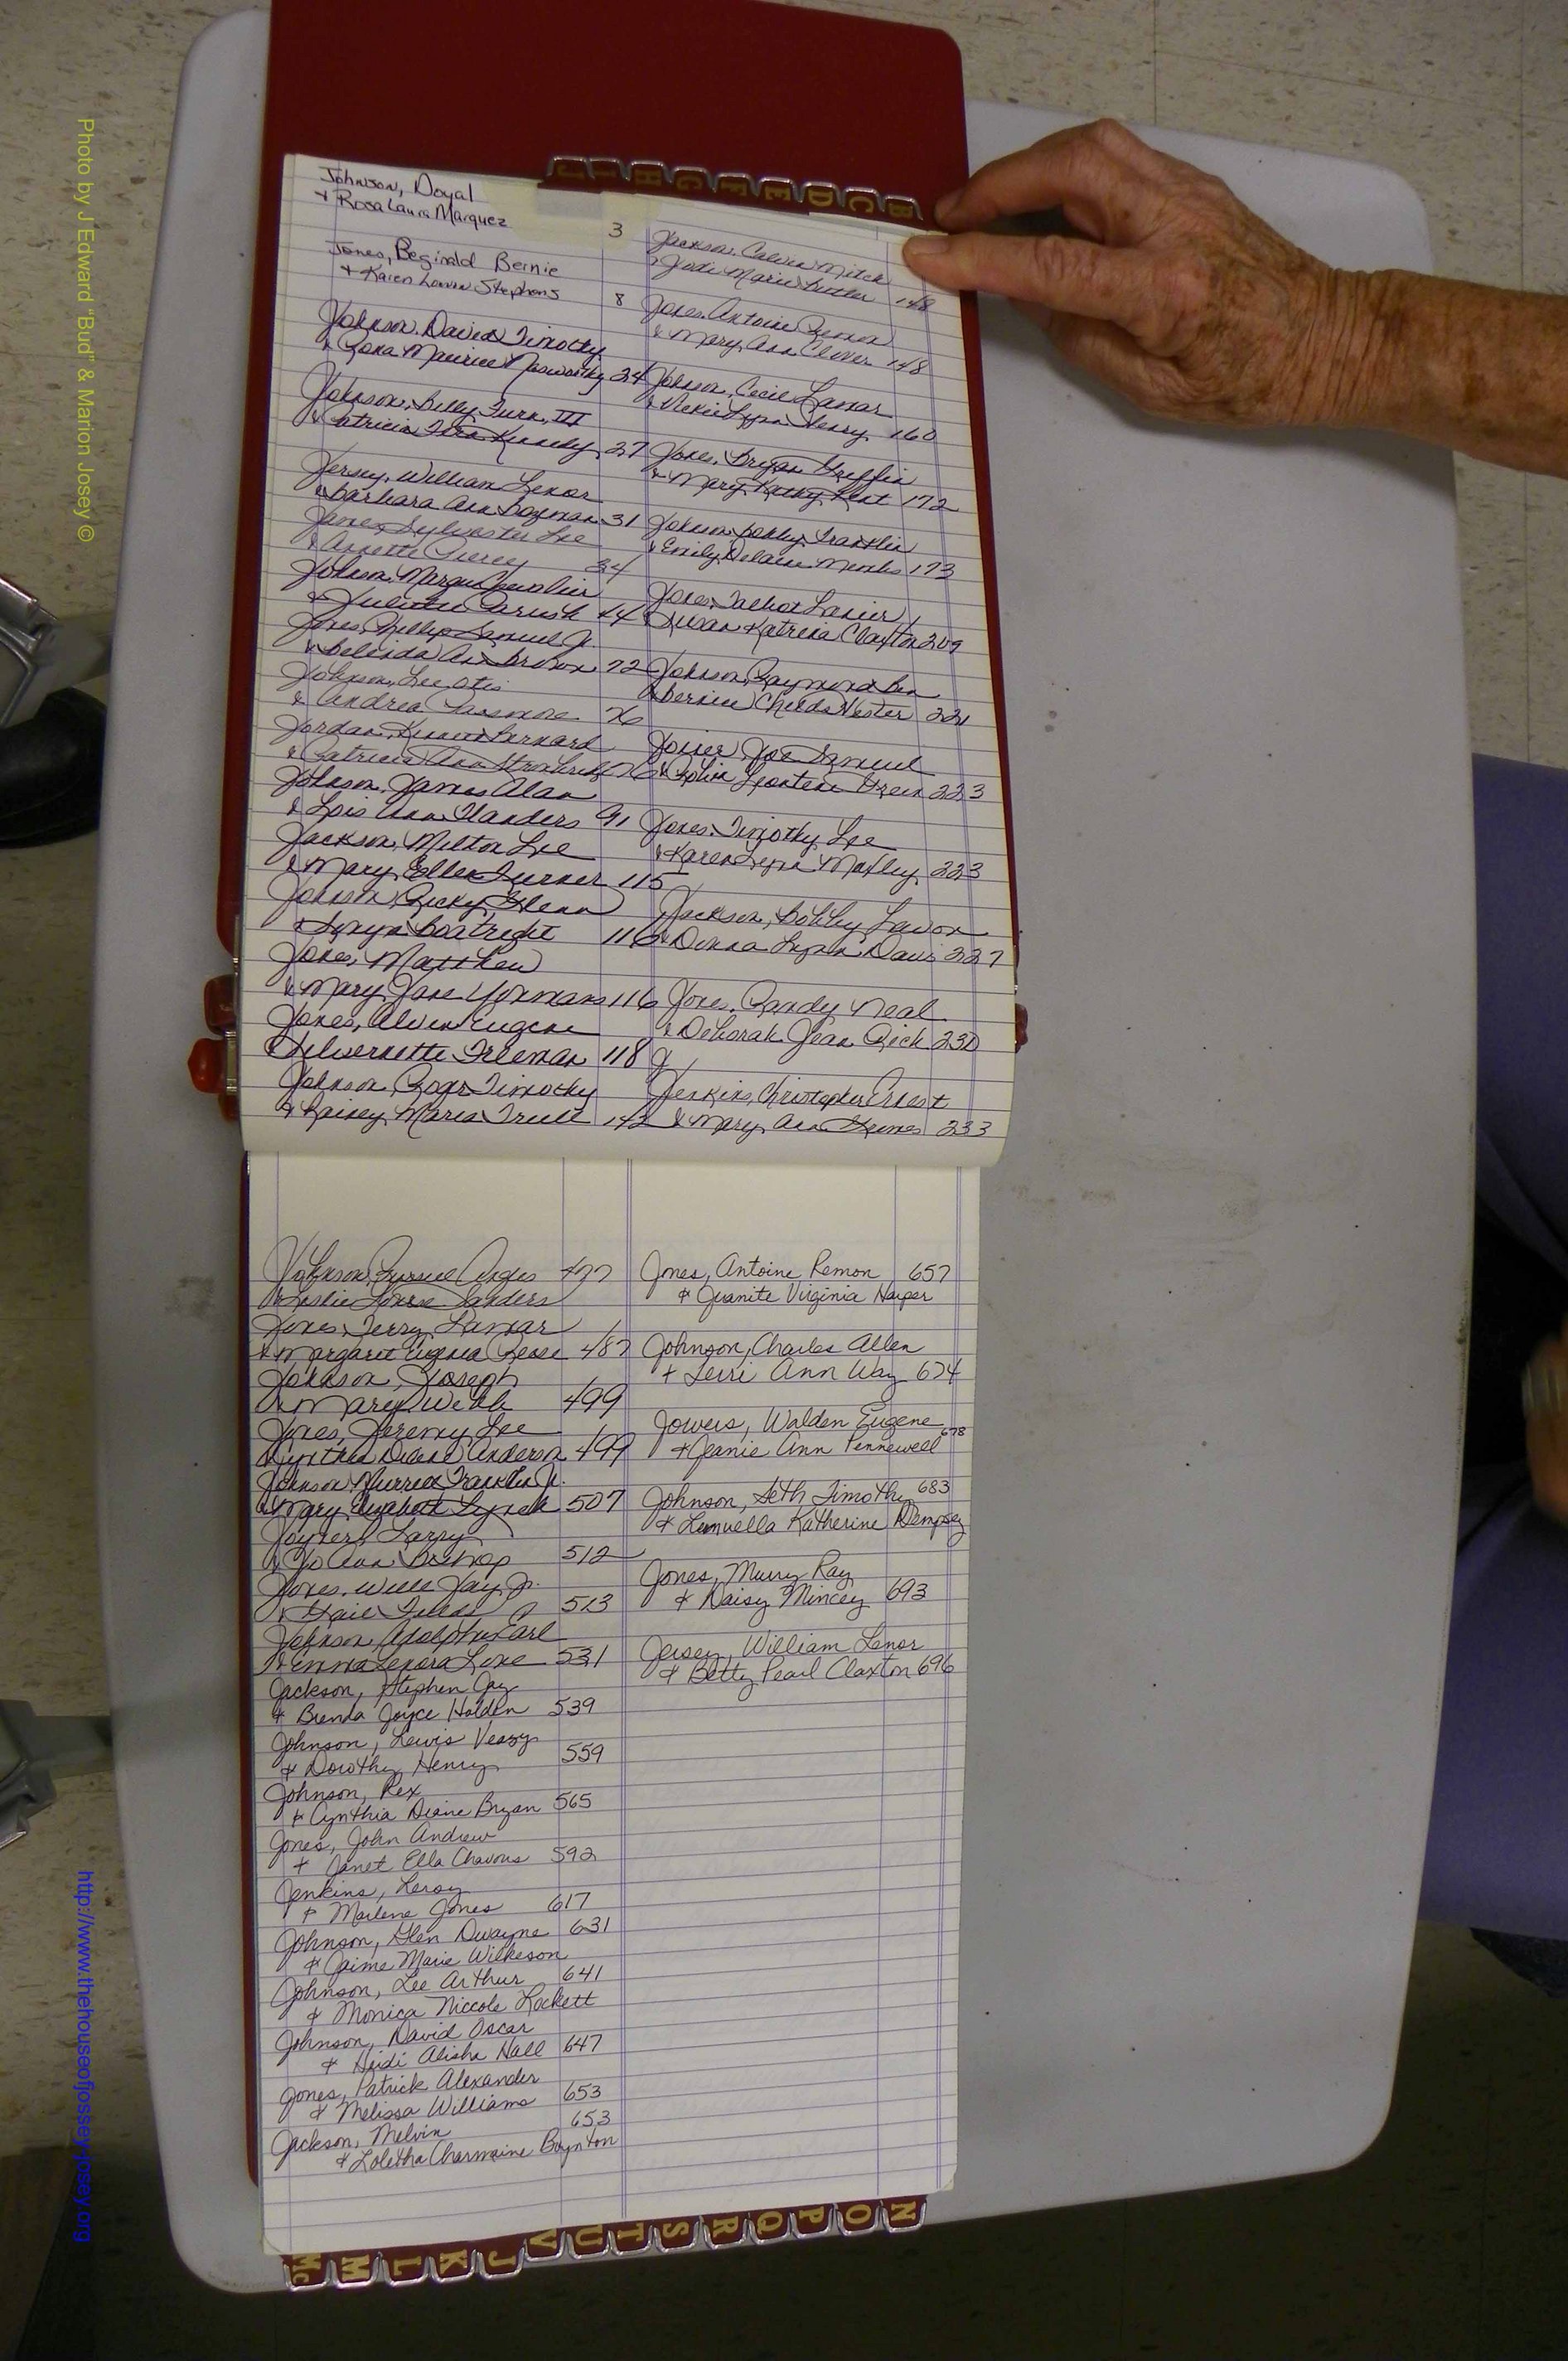 Johnson, Doyal
+ Rosa Laura Marquez 3
Jones, Reginald Bernie
+ Karen Lavon Stephens 8
Johnson, David Timothy
& Rona Maurice Nosworthy 24
Johnson, Billy Turn, III
& Patricia Kennedy 27
Jersey, William Lenor
& Barbara Ann Bozman 31
Jones, Sylvester Lee
& Annette 34
Johnson, Chevalier
& Juliette Parish 44
Jones, Phillip Samuel Jr.
& Belinda Ann Brown 72
Johnson, Lee Otis
& Andrea 76
Jordan, Bernard
& Patricia Ann 76
Johnson, James Alan
& Lois Ann Flanders 91
Jackson, Milton Lee
& Mary Ellen Turner 115
Johnson, Ricky Glenn
& Boatright 116
Jones, Matthew
& Mary Jane Youmans 116
Jones, Alven Eugene
& Freeman 118
Johnson, Roger Timothy
& Rainey Maria 142
Jackson, Calvin Mitch
& Jodi Marie Butler 148
Jones, Antoine Remon
& Mary Ann Clover 148
Johnson, Cecil Lamar
& Vickie Lynn 160
Jones, Bryan Griffin
& Mary Kathy Kent 172
Johnson, Bobby Franklin
& Emily Delaine Meeks 173
Jones, Talbot Lanier
& Susan Katrena Claxton 209
Johnson, Raymond Ben
& Bernice Childs Vester 221
Joiner, Joe Samuel
& Green 223
Jones, Timothy Lee
& Karen Lynn Moxley 223
Jackson, Bobby Lavon
& Donna Lynn Davis 227
Jones, Randy Neal
& Deborah Jean Rick 230
J
Jenkins, Christopher Ernest
& Mary Ann 233
Johnson, Russell Angus 477
& Leslie Louise Sanders
Jones, Terry Lamar
& Margaret Eugenia Reese 487
Johnson, Joseph
& Mary Webb 499
Jones, Jeremy Lee
& Cynthia Diane Anderson 499
Johnson, Murrell Franklin Jr.
& Mary Elizabeth Lynch 507
Joyner, Larry
& Jo Ann Bishop 512
Jones, Will Jay, Jr.
& Gail 513
Johnson, Adolphus Earl
& Emma Lenora Love 531
Jackson, Stephen Gay
& Brenda Joyce Holden 539
Johnson, Lewis Veasy
& Dorothy Henry 559
Johnson, Rex
& Cynthia Diane Bryan 565
Jones, John Andrew
+ Janet Ella Chavous 592
Jenkins, Leroy
& Marlene Jones 617
Johnson, Glen Dwayne 631
& Jaime Marie Wilkeson
Johnson, Lee Arthur 641
& Monica Niccole Lockett
Johnson, David Oscar
& Heidi Alisha Hall 647
Jones, Patrick Alexander
& Melissa Williams 653
Jackson, Melvin 653
& Loletha Charmaine Boynton
Jones, Antoine Remon 657
& Quanite Virginia Harper
Johnson, Charles Allen
+ Terri Ann Way 674
Jowers, Walden Eugene
& Jeanie Ann Pennewell 678
Johnson, Seth Timothy 683
& Lemuella Katherine Dempsey
Jones, Murry Ray
& Daisy Mincey 693
Jersey, William Lenor
& Betty Pearl Claxton 696
B C D E F G H I J
Mc M L K J V U T S R Q P O N
Photo by J Edward "Bud" & Marion Josey ©
http://www.thehouseofjossey-josey.org